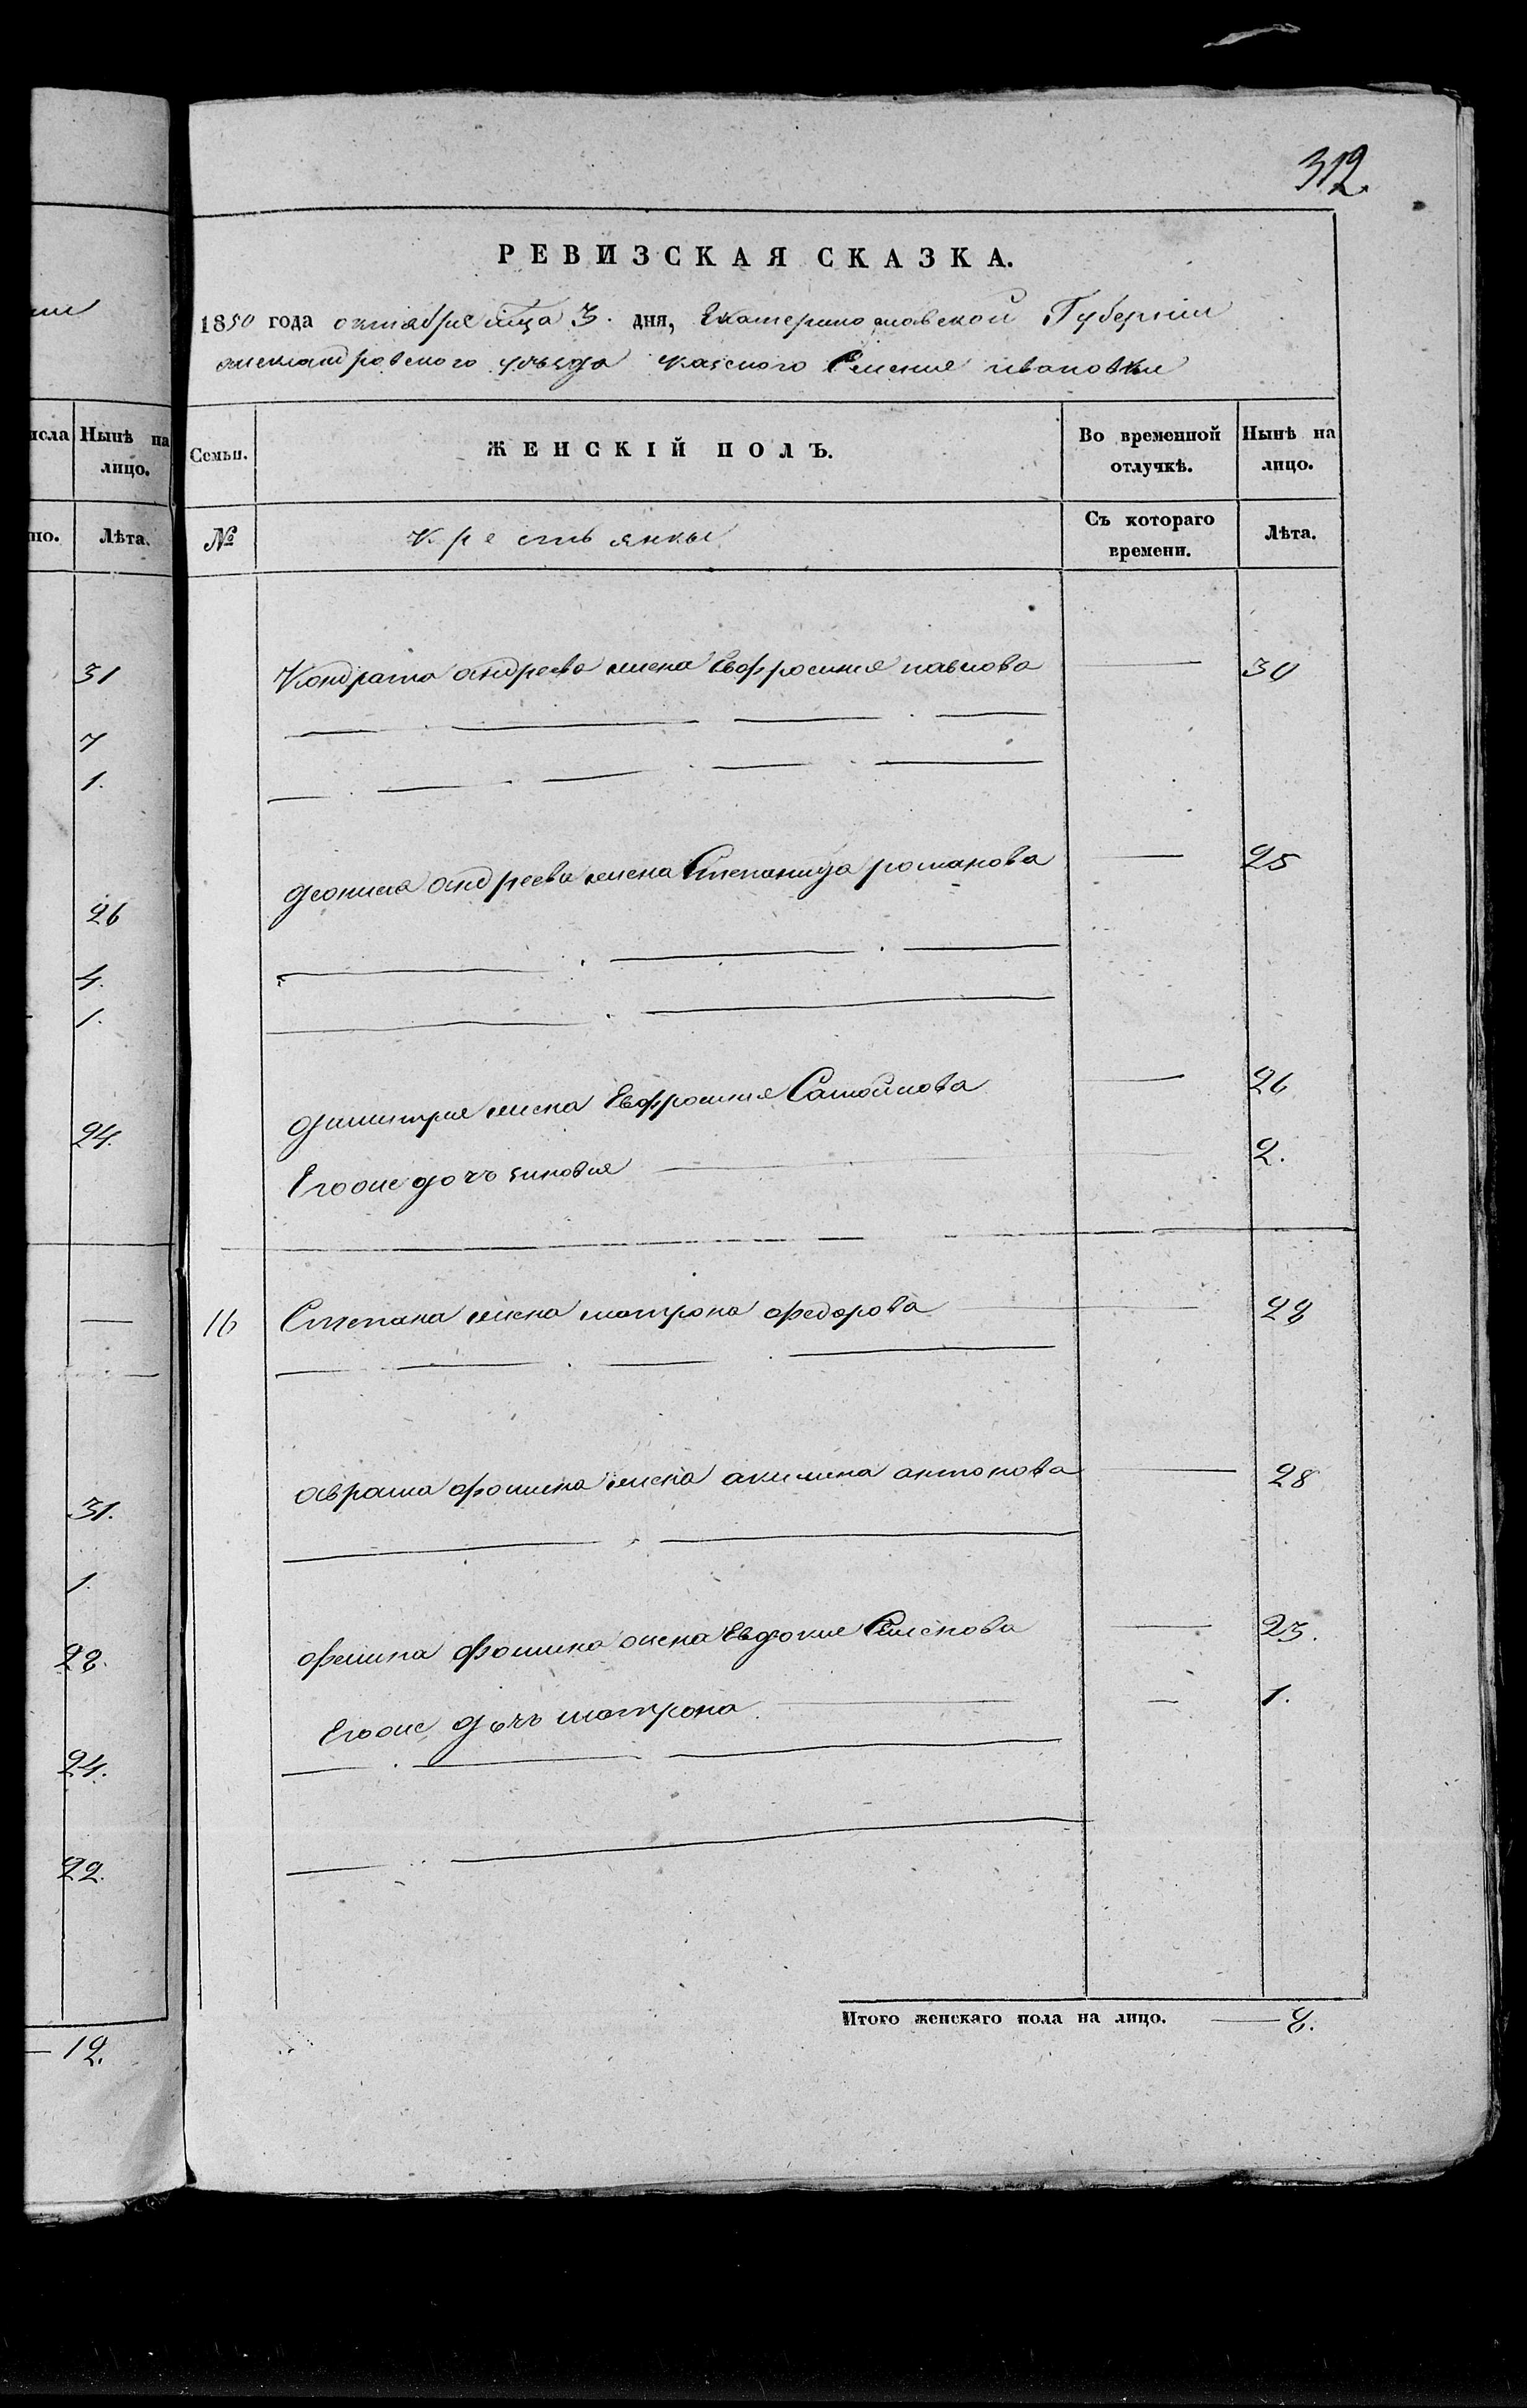 312.
РЕВИЗСКАЯ СКАЗКА.
1850 года октября мца 3. дня, Екатеринославской Губернии
александровского уъезда казеного Селения ивановки
исла Нынѣ на лицо.
Семьи. ЖЕНСКІЙ ПОЛЪ. Во временной отлучкѣ. Нынѣ на лицо.
но. Лѣта.
№ Крестьянки Съ котораго времени. Лѣта.
31
Кондрата андреева жена Евфросиния павлова — 30
7
1.
Деониса андреева жена Степанида романова — 25
26
4.
1.
Димитрия жена Евфросиния Самойлова — 26
24.
Егоже дочъ зиновия — 2.
16 Степана жена матрона федорова — 28
Аврама фомина жена акилина антонова — 28
31.
1.
фомина жена Евдокия Семенова — 23.
28.
Егоже дочъ матрона — 1.
24.
22.
Итого женскаго пола на лицо. — 8.
— 12.